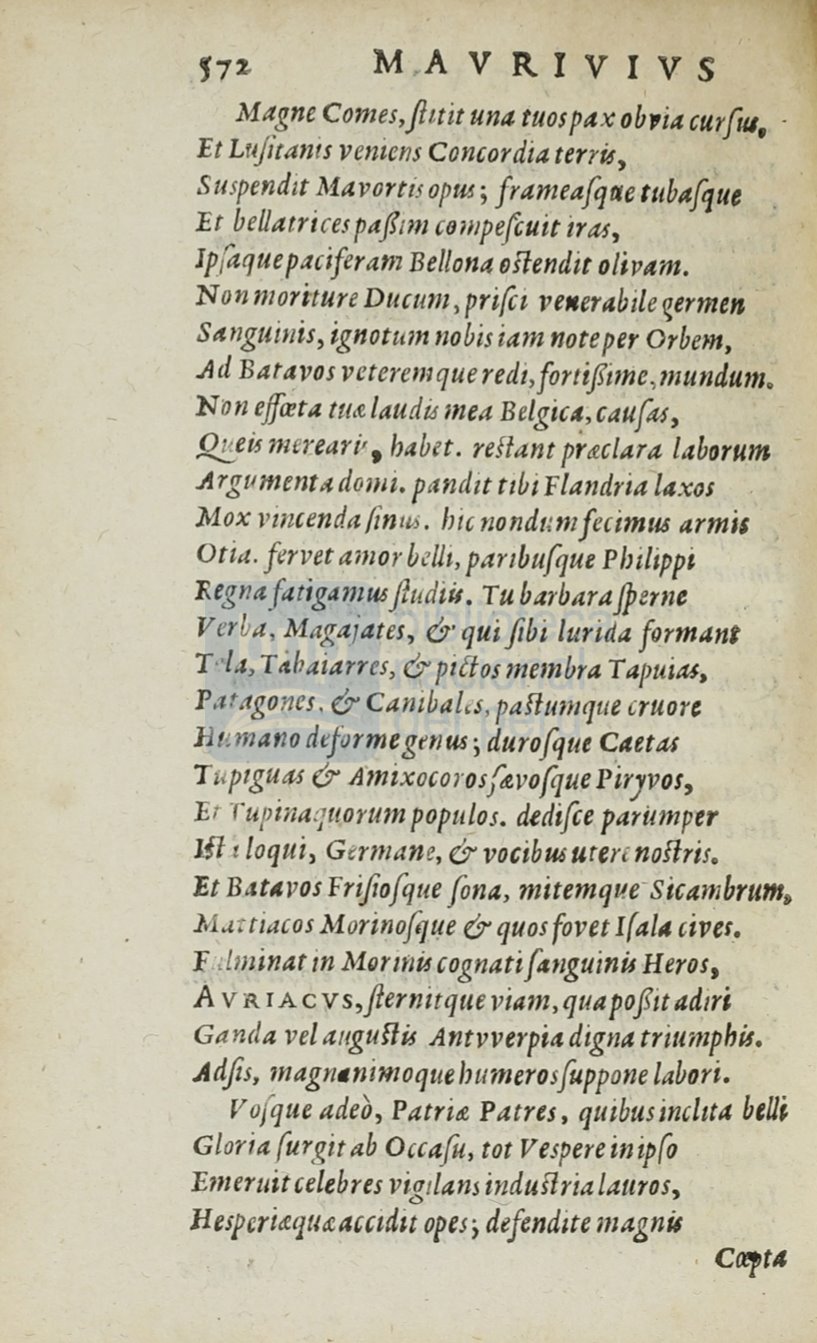 572 MAVRIVIVS
Magne Comes, ſtitit una tuos pax obvia curſus,
Et Luſitanis veniens Concordia terris,
Suspendit Mavortis opus; frameaſque tubaſque
Et bellatrices paßim compeſcuit iras,
Ipſaque paciferam Bellona oſtendit olivam.
Non moriture Ducum, priſci venerabile germen
Sanguinis, ignotum nobis iam note per Orbem,
Ad Batavos veteremque redi, fortißime, mundum.
Non effœta tuæ laudis mea Belgica, cauſas,
Queis merearis, habet. reſtant præclara laborum
Argumenta domi. pandit tibi Flandria laxos
Mox vincenda ſinus. hic nondum fecimus armis
Otia. fervet amor belli, paribuſque Philippi
Regna fatigamus ſtudiis. Tu barbara ſperne
Verba, Magajates, & qui ſibi lurida formant
Tela, Tabaiarres, & pictos membra Tapuias,
Patagones, & Canibales, paſtumque cruore
Humano deforme genus; duroſque Caetas
Tupiguas & Amixocoros ſævoſque Piryvos,
Et Tupinaquorum populos. dediſce parumper
Iſta loqui, Germane, & vocibus utere noſtris.
Et Batavos Friſioſque ſona, mitemque Sicambrum,
Mattiacos Morinoſque & quos fovet Iſala cives.
Fulminat in Morinis cognati ſanguinis Heros,
AVRIACVS, ſternitque viam, qua poßit adiri
Ganda vel auguſtis Antvverpia digna triumphis.
Adſis, magnanimoque humeros ſuppone labori.
Voſque adeò, Patriæ Patres, quibus inclita belli
Gloria ſurgit ab Occaſu, tot Veſpere in ipſo
Emeruit celebres vigilans induſtria lauros,
Heſperiæquæ accidit opes; defendite magnis
Cœpta